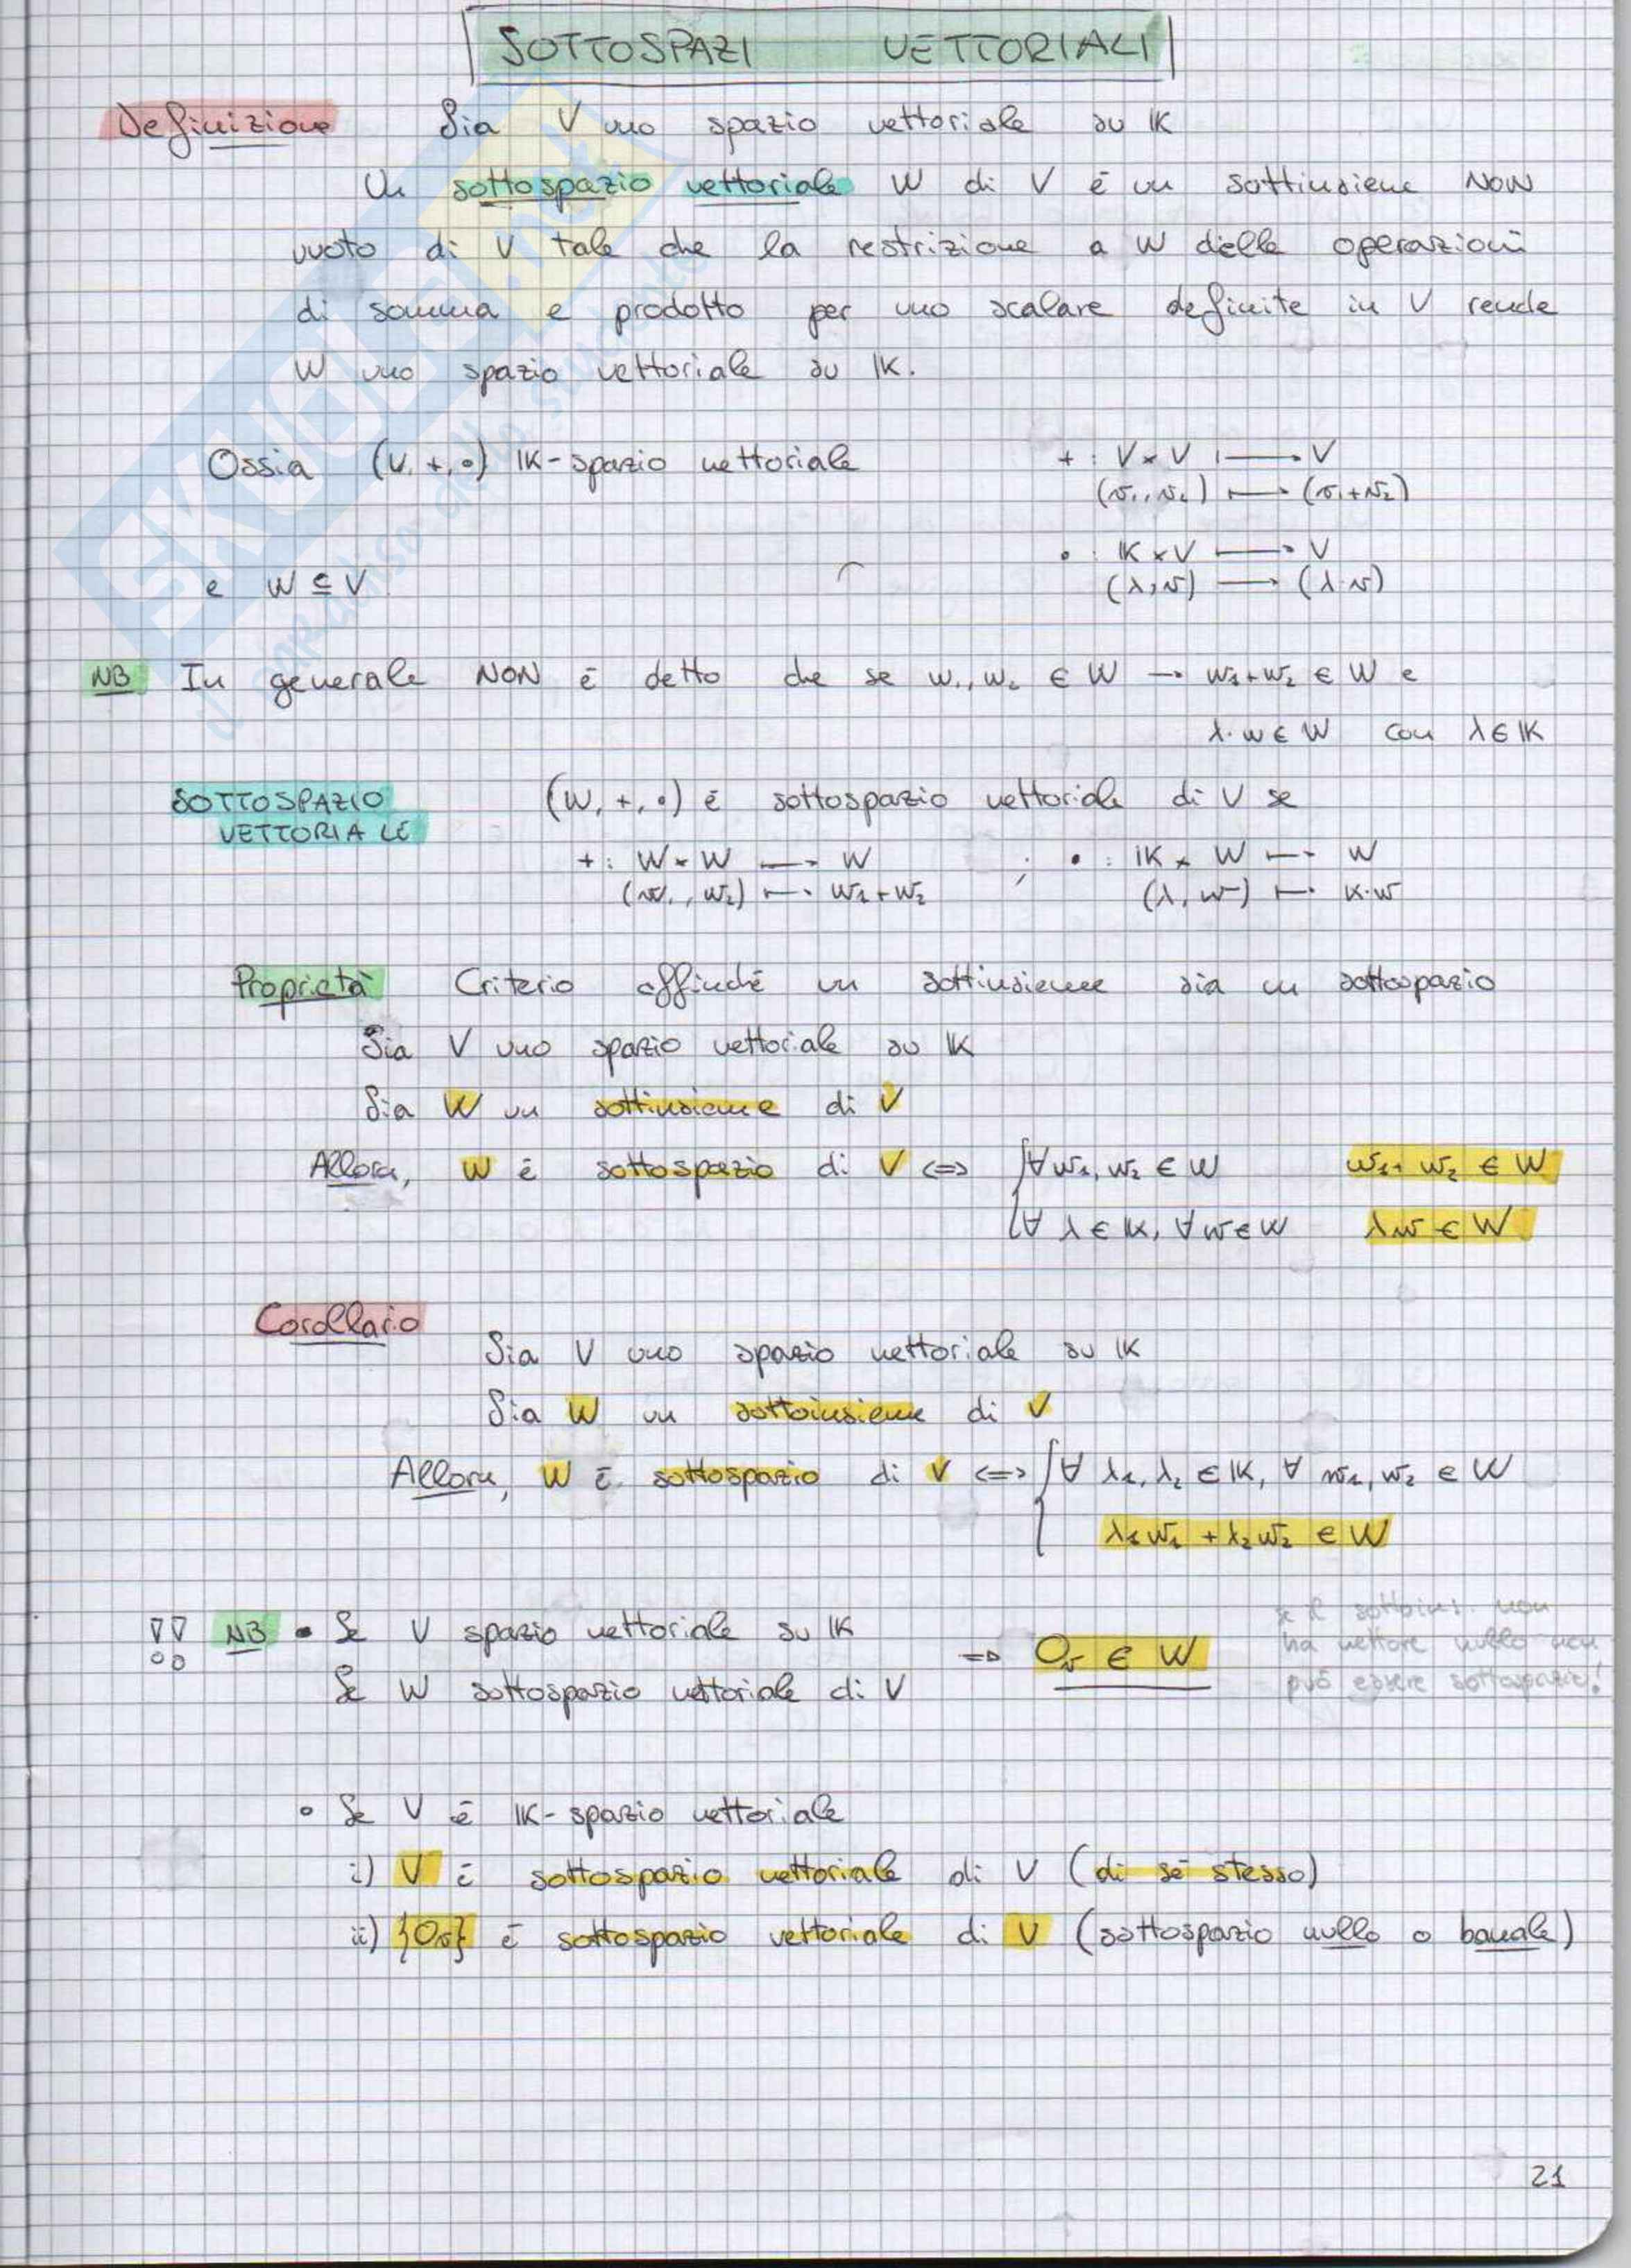 SOTTOSPAZI VETTORIALI
Definizione Sia V uno spazio vettoriale su IK
Un sottospazio vettoriale W di V è un sottinsieme NON
vuoto di V tale che la restrizione a W delle operazioni
di somma e prodotto per uno scalare definite in V rende
W uno spazio vettoriale su IK.
Ossia (V, +, •) IK-spazio vettoriale + : V × V ⟼ V
(v₁, v₂) ⟼ (v₁+v₂)
• : IK × V ⟼ V
e W ⊆ V (λ, v) ⟶ (λ·v)
NB In generale NON è detto che se w₁, w₂ ∈ W → w₁+w₂ ∈ W e
λ·w ∈ W con λ ∈ IK
SOTTOSPAZIO (W, +, •) è sottospazio vettoriale di V se
VETTORIALE
+ : W × W ⟼ W ; • : IK × W ⟼ W
(w₁, w₂) ⟼ w₁+w₂ (λ, w) ⟼ K·w
Proprietà Criterio affinché un sottinsieme sia un sottospazio
Sia V uno spazio vettoriale su IK
Sia W un sottinsieme di V
Allora, W è sottospazio di V <=> { ∀ w₁, w₂ ∈ W w₁+ w₂ ∈ W
∀ λ ∈ IK, ∀ w ∈ W λw ∈ W
Corollario
Sia V uno spazio vettoriale su IK
Sia W un sottoinsieme di V
Allora, W è sottospazio di V <=> { ∀ λ₁, λ₂ ∈ IK, ∀ w₁, w₂ ∈ W
λ₁w₁ + λ₂w₂ ∈ W
!! NB • Se V spazio vettoriale su IK
Se W sottospazio vettoriale di V => 0ᵥ ∈ W
se il sottoins. non
ha vettore nullo non
può essere sottospazio!
• Se V è IK-spazio vettoriale
i) V è sottospazio vettoriale di V (di sé stesso)
ii) {0ᵥ} è sottospazio vettoriale di V (sottospazio nullo o banale)
21
SKUOLA.net
il paradiso dello studente